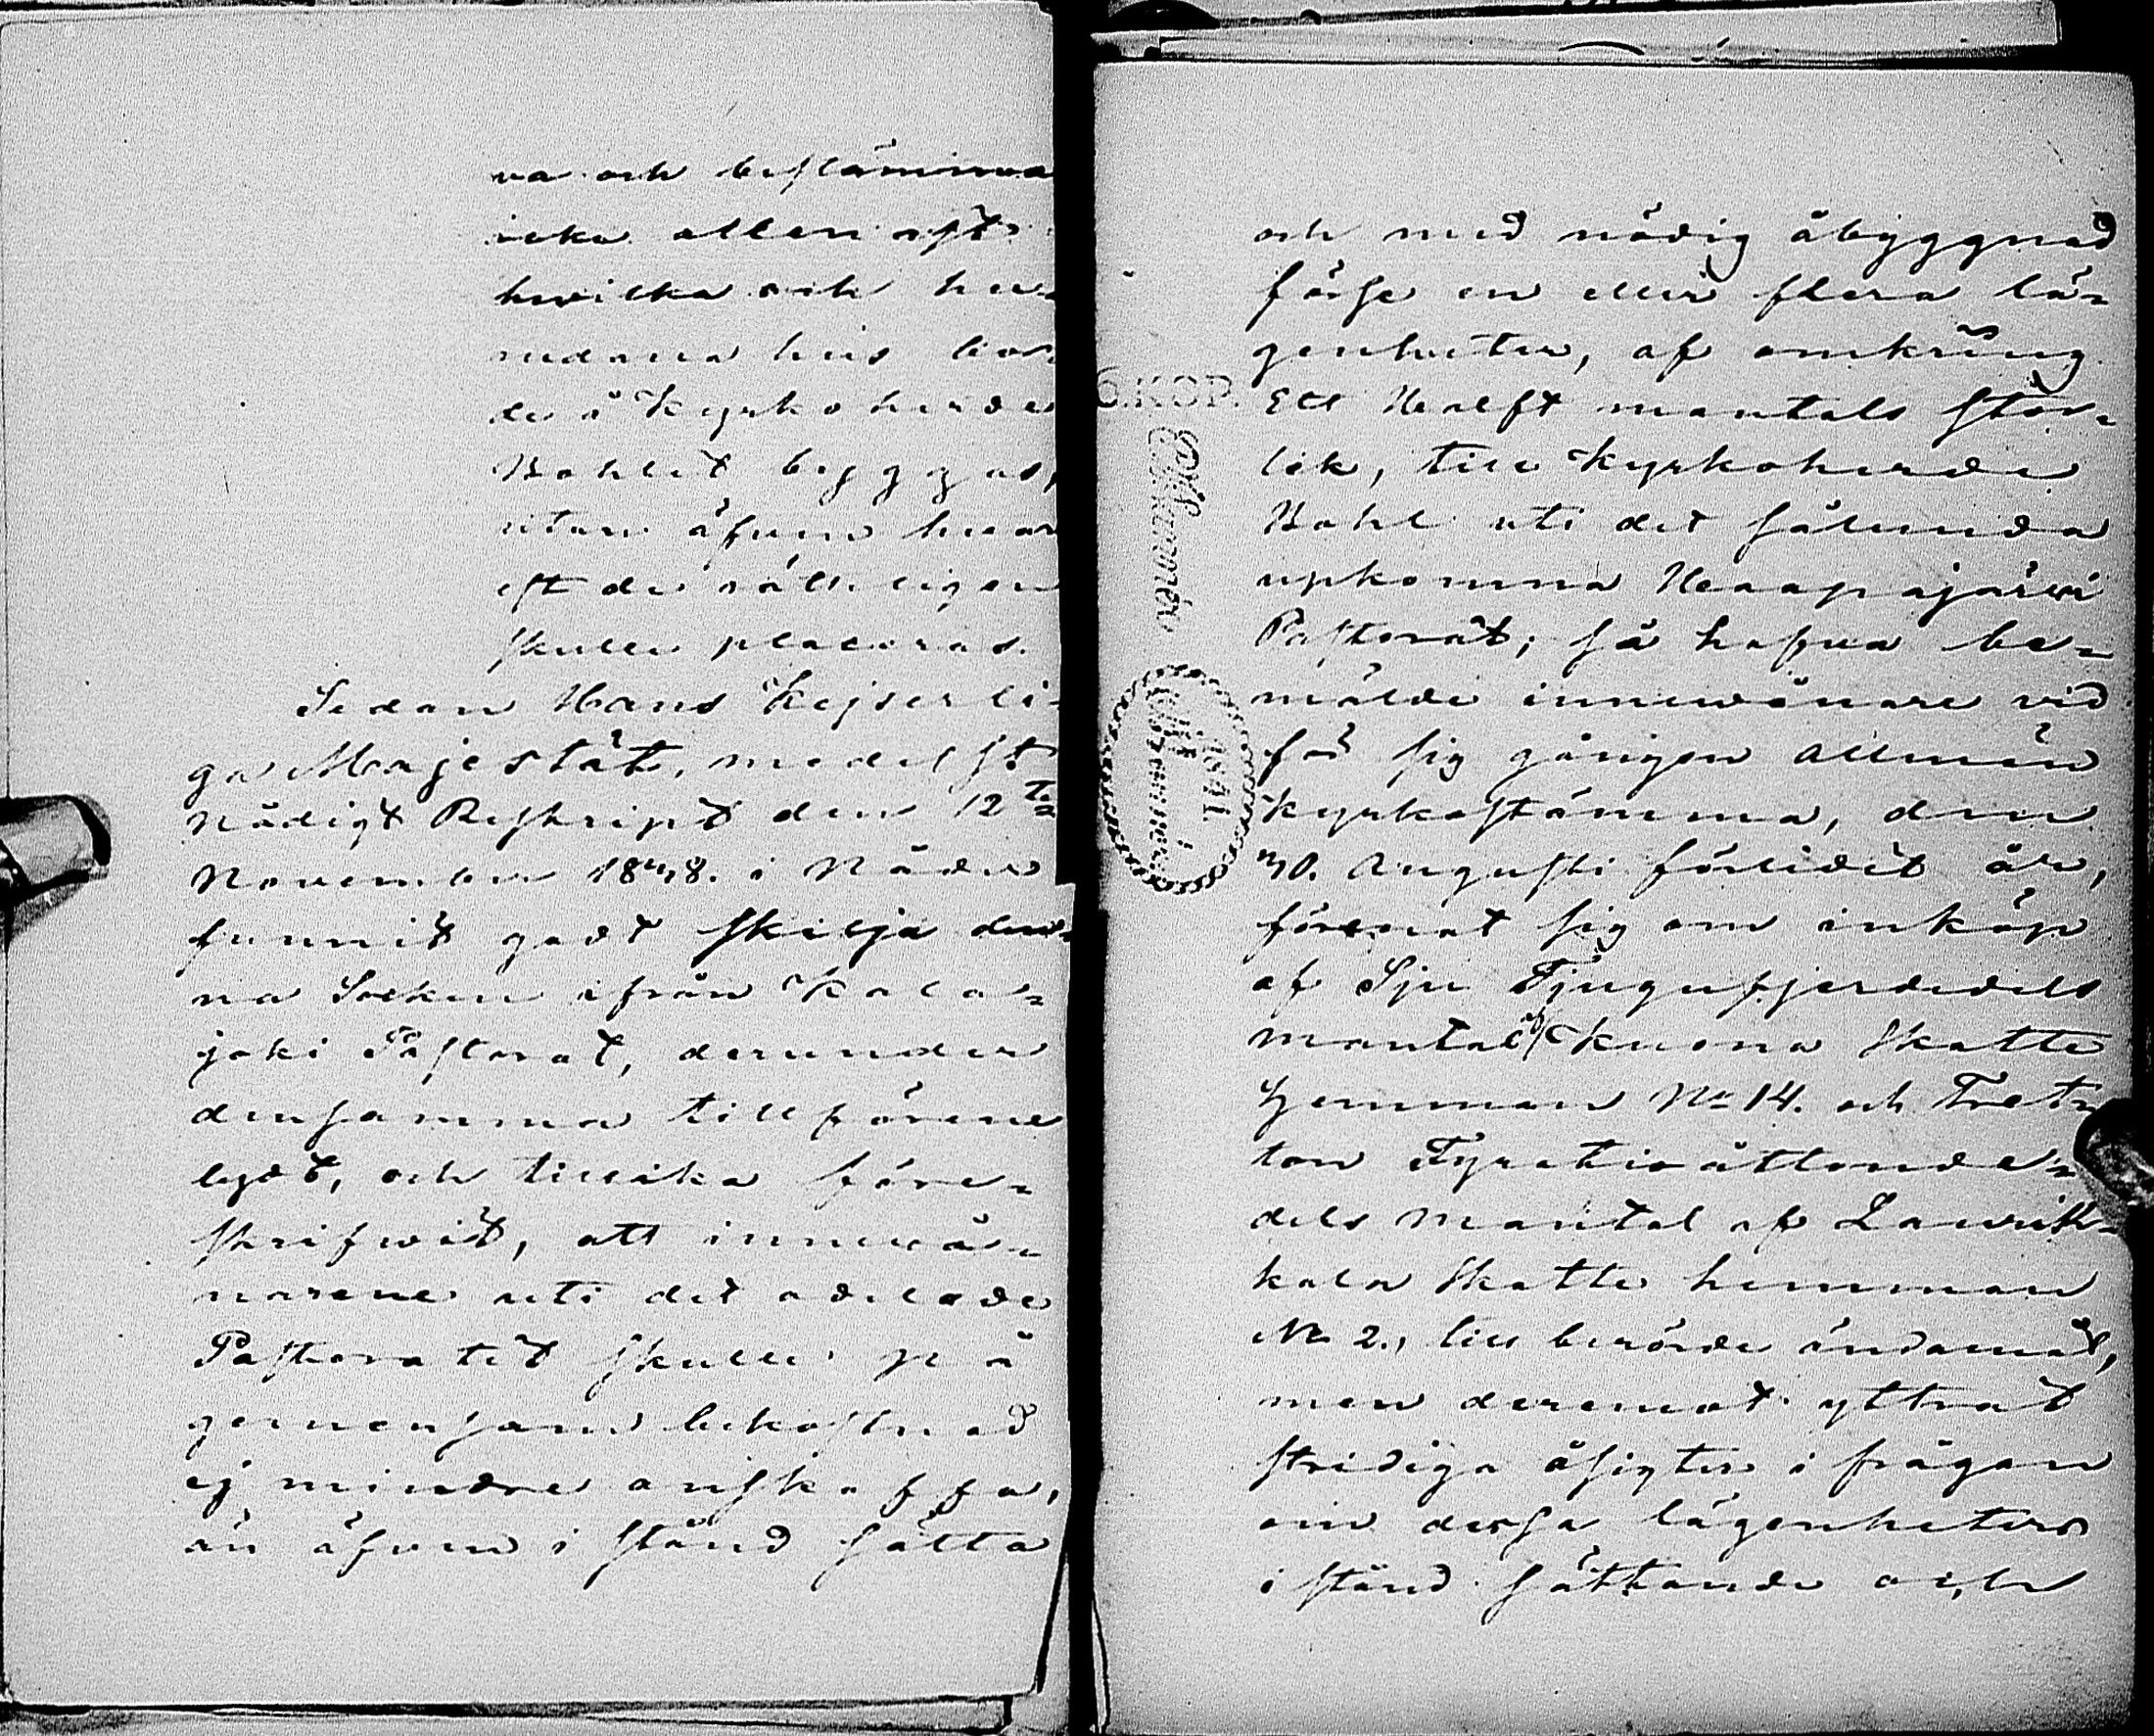 va och bestämma
icke allenast
hvilka och hu-
rudana hus bor-
de å Kyrkoherde
Bohlet byggas,
utan äfven hvar-
est de rätteligen
skulle placeras.
Sedan Hans Kejserli-
ga Majestät, medelst
Nådigt Reskript den 12te
November 1848. i Nåder
funnit godt skilja den-
na Socken ifrån Kala-
joki Pastorat, derunder
densamma tillförene
lydt, och tillika före-
skrifwit, att innewå-
narene uti det adelade
Pastoratet skulle på
gemensam bekostnad
ej mindre anskaffa,
än äfven i stånd sätta
och med nödig åbyggnad
förse en eller flera lä-
genheter, af omkring
Ett Halft mantals stor-
lek, till Kyrkoherde
Bohl uti det sålunda
upkomna Haapajärwi
Pastorat; så hafva be-
mälde innewånare vid
för sig gången allmän
Kyrkostämma, den
30. Augusti förlidit år,
förenat sig om inköp
af Sju Tjugufjerdedels
mantal af Kuona Skatte
Hemman No 14. och Tret-
ton Fyratioåttonde-
dels mantal af Lawik-
kala Skatte hemman
No 2., till berörde ändamål,
men deremot yttrat
stridiga åsigter i frågan
om dessa lägenheters
i stånd sättande och
6.KOP.